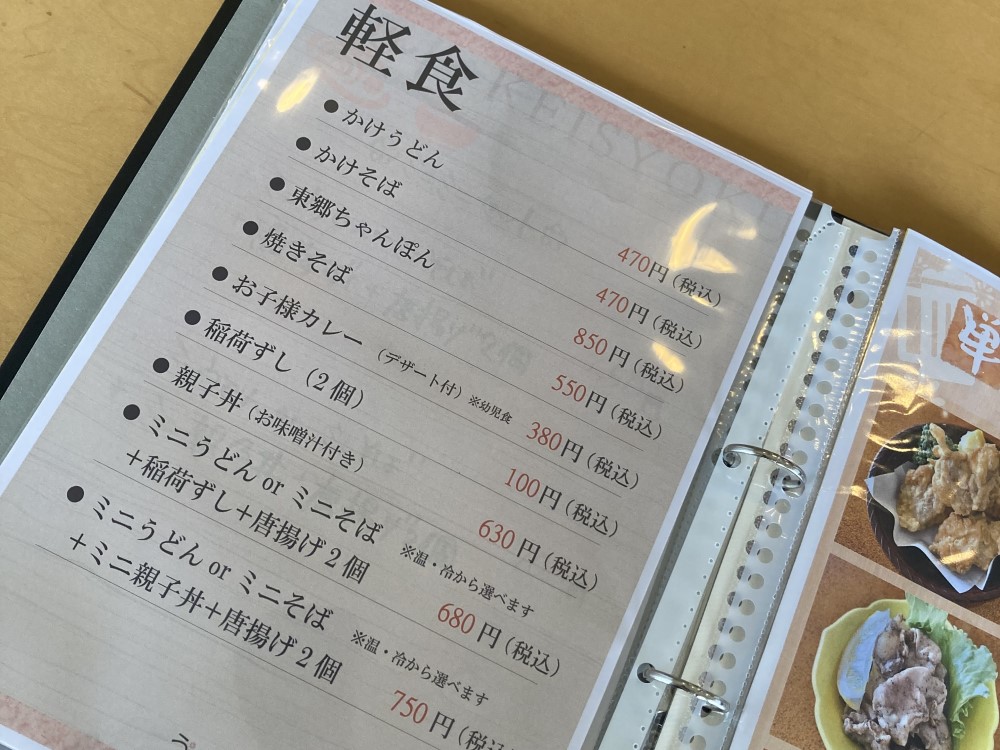 軽食
KEISYOKU
●かけうどん 470円(税込)
●かけそば 470円(税込)
●東郷ちゃんぽん 850円(税込)
●焼きそば 550円(税込)
●お子様カレー (デザート付) ※幼児食 380円(税込)
●稲荷ずし (2個) 100円(税込)
●親子丼(お味噌汁付き) 630円(税込)
●ミニうどん or ミニそば ※温・冷から選べます
+稲荷ずし+唐揚げ2個 680円(税込)
●ミニうどん or ミニそば ※温・冷から選べます
+ミニ親子丼+唐揚げ2個 750円(税込)
単